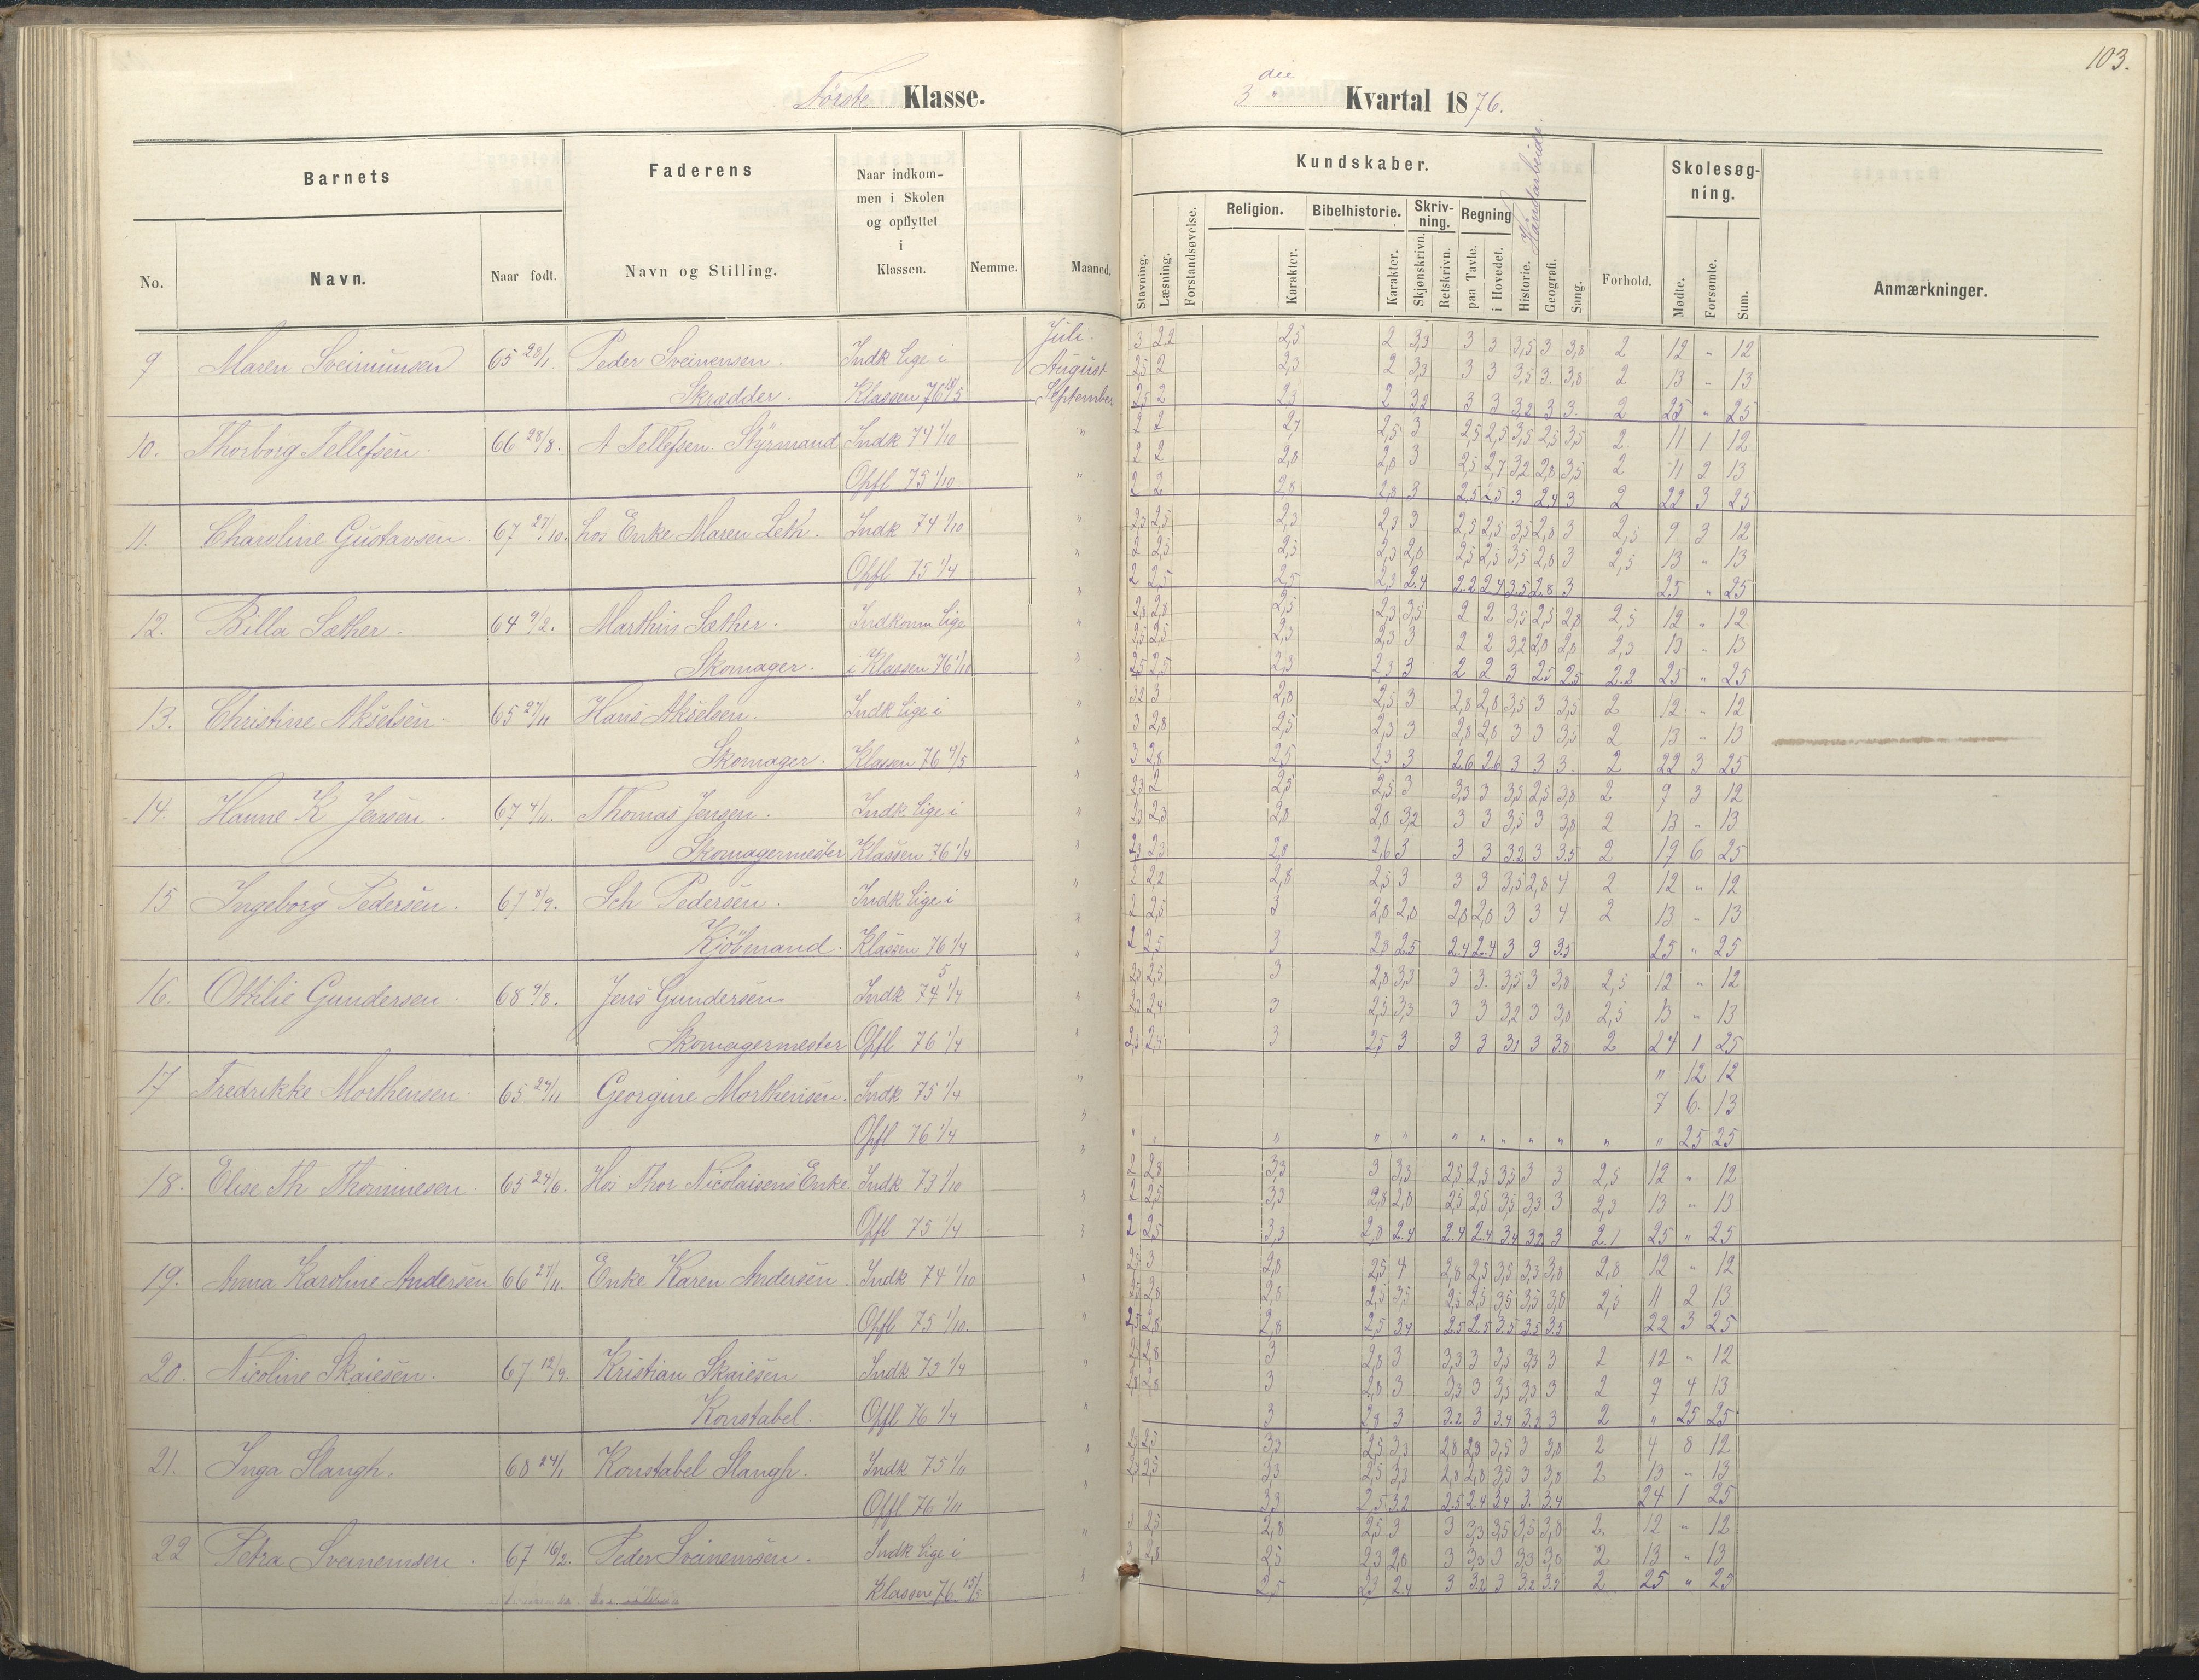 103.
Første Klasse.
3die Kvartal 1876.
Barnets
Faderens
Naar indkommen i Skolen og opflyttet i Klassen.
Nemme.
Maaned.
No.
Navn.
Naar født.
Navn og Stilling.
Kundskaber.
Haandarbeide.
Stavning.
Læsning.
Forstandsøvelse.
Religion.
Karakter.
Bibelhistorie.
Karakter.
Skrivning.
Skjønskrivn.
Retskrivn.
Regning
paa Tavle.
i Hovedet.
Historie.
Geografi.
Sang.
Forhold.
Skolesøgning.
Mødte.
Forsømte.
Sum.
Anmærkninger.
9 Maren 65 Peder Skrædder. Indk lige i Klassen 76
Juli. 3 2,2 2,5 2 3,3 3 3 3,5 3 3,8 2 12 " 12
August 2,5 2 2,3 2 3,3 3 3 3,5 3. 3,8 2 13 " 13
September 2,5 2 2,3 2 3,2 3 3 3,2 3 3. 2 25 " 25
10. Thorborg Tellefsen. 66 28/8. A Tellefsen. Styrmand Indk 74 1/10
Opfl 75 1/10
2 2 2,7 2,5 3 2,5 2,5 3,5 2,5 3,5 2. 11 1 12
2 2 2,8 2,8 3 2,5 2,7 3,2 2,8 3,5 2 11 2 13
2 2 2,8 2,8 3 2,5 2,5 3 2,4 3 2 22 3 25
11. Charoline Gustavsen. 67 27/10. hos Enke Maren Leth. Indk 74 1/10
Opfl 75 1/4
2,3 2,5 2,3 2,3 3 2,5 2,5 3,5 2,8 3 2,5 9 3 12
2 2,5 2,5 2,3 2,8 2,5 2,5 3,5 2,8 3 2,5 13 " 13
2 2,5 2,5 2,3 2.4 2.2 2.4 3.5 2.8 3 25 " 25
12. Billa Sæther. 64 9/2. Marthin Sæther. Skomager. Indkomm lige i Klassen 76 1/10
2,8 2,8 2,5 2,3 3,5 2 2 3,5 2,5 2,8 2,5 12 " 12
2,5 2,5 2,3 2,3 3 2 2 3,2 2,8 2,8 2,3 13 " 13
2,5 2,5 2,3 2,3 3 2 2 3 2,5 2.5 2.2 25 " 25
13. Christine Akselsen. 65 27/11 Hans Akselsen. Skomager. Indk lige i Klassen 76 4/5
3,2 3 2,8 2,5 3 2,8 2,8 3,5 3 3,5 2 12 " 12
3 2,8 2,5 2,3 3 2,8 2,8 3 3 3,5 2 13 " 13
3 2,8 2,5 2,3 3 2.6 2.6 3 3 3. 2 22 3 25
14. Hanne K Jensen. 67 4/11. Thomas Jensen. Skomagermester Indk. lige i Klassen 76 1/4
2,3 2 2,5 2,5 3 3,3 3 3,5 2,5 3,8 2 9 3 12
2,3 2,3 2,8 2,8 3,2 3 3 3,5 3 3,8 2 13 " 13
2,3 2,3 2,8 2,6 3 3 3 3.2 3 3.5 2 19 6 25
15 Ingeborg Pedersen. 67 8/9. Sch Pedersen. Kjöbmand. Indk lige i Klassen 76 1/4
2 2,2 2,8 2,5 3 3 3 3,5 2,8 4 2 12 " 12
2 2,5 3 2,8 2,8 2,8 2,8 3 3 4 2 13 " 13
2 2,5 3 2,8 2.5 2.4 2.4 3 3 3.5 25 " 25
16. Ottilie Gundersen. 68 9/8. Jens Gundersen Skomagermester Indk 75 1/4
Opfl 76 1/4
2,3 2,5 3 2,8 3,3 3 3. 3,5 3 3,8 2,5 12 " 12
2,3 2,4 3 2,5 3,3 3 3 3,2 3 3,8 2,5 13 " 13
2,3 2,4 3 2,5 3 3 3 3,1 3 3.8 2 24 1 25
17 Fredrikke Morthensen 65 29/11 Georgine Morthensen. Indk 75 1/4
Opfl 76 1/4
" 12 12
7 6. 13
" " " " " " " " " " " " 25 25
18. Elise Th Thommesen. 65 24/6. Hos Thor Nicolaisens Enke Indk 73 1/10
Opfl 75 1/4
2 2,8 3,3 3 3,5 2,5 2,5 3,5 3 3 2,5 12 " 12
2 2,5 3,3 2,8 2,8 2,5 2,5 3,5 3,3 3 2,3 13 " 13
2 2,5 3,3 2,8 2.4 2.4 2.4 3.4 3.2 3 2.1 25 " 25
19. Anna Karoline Andersen 66 27/11. Enke Karen Andersen. Indk 74 1/10
Opfl 75 1/10.
2,5 3 2,8 2,5 4 2,8 2,5 3,5 3,3 3,8 2,8 12 " 12
2,5 2,8 2,8 2,5 3,5 2,5 2,5 3,5 3,5 3,8 2,5 11 2 13
2,5 2,8 2,8 2,5 3.4 2.5 2.5 3.5 3.5 3.5 22 3 25
20. Nicoline Skaiesen. 67 12/9. Kristian Skaiesen Konstabel. Indk 73 1/4
Opfl 76 1/4
2,8 3 2,8 3 3,3 3 3,5 3,3 3 2 12 " 12
2,8 2,8 3 2,8 3 3,3 3 3,5 3,3 3 2 9 4 13
3 2,8 3 3.2 3 3.4 3.2 3 2 " 25 25
21. Inga Slangh. 68 24/1 Konstabel Slangh. Indk 75 1/11
Opfl. 76 1/11
2,3 2,5 3,3 2,5 3,3 2,8 2,8 3,5 3 3,8 2 4 8 12
2,3 2,5 3,3 2,5 3,3 2,8 2,8 3,5 3 3,8 2 13 " 13
3,3 2,5 3.2 2.5 2.4 3.4 3. 3.4 24 1 25
22 Petra Sveinemsen. 67 16/2. Peder Sveinemsen. Indk lige i Klassen 76 15/5
3 2,5 2,8 2,5 3 3 3,3 3,5 3,5 3,8 2. 12 " 12
3 2,8 2,5 2,3 2,8 3 3,3 3 3,3 3,8 2 13 " 13
2,5 2,3 2.4 3 3.2 3 3.2 3.5 2 25 " 25